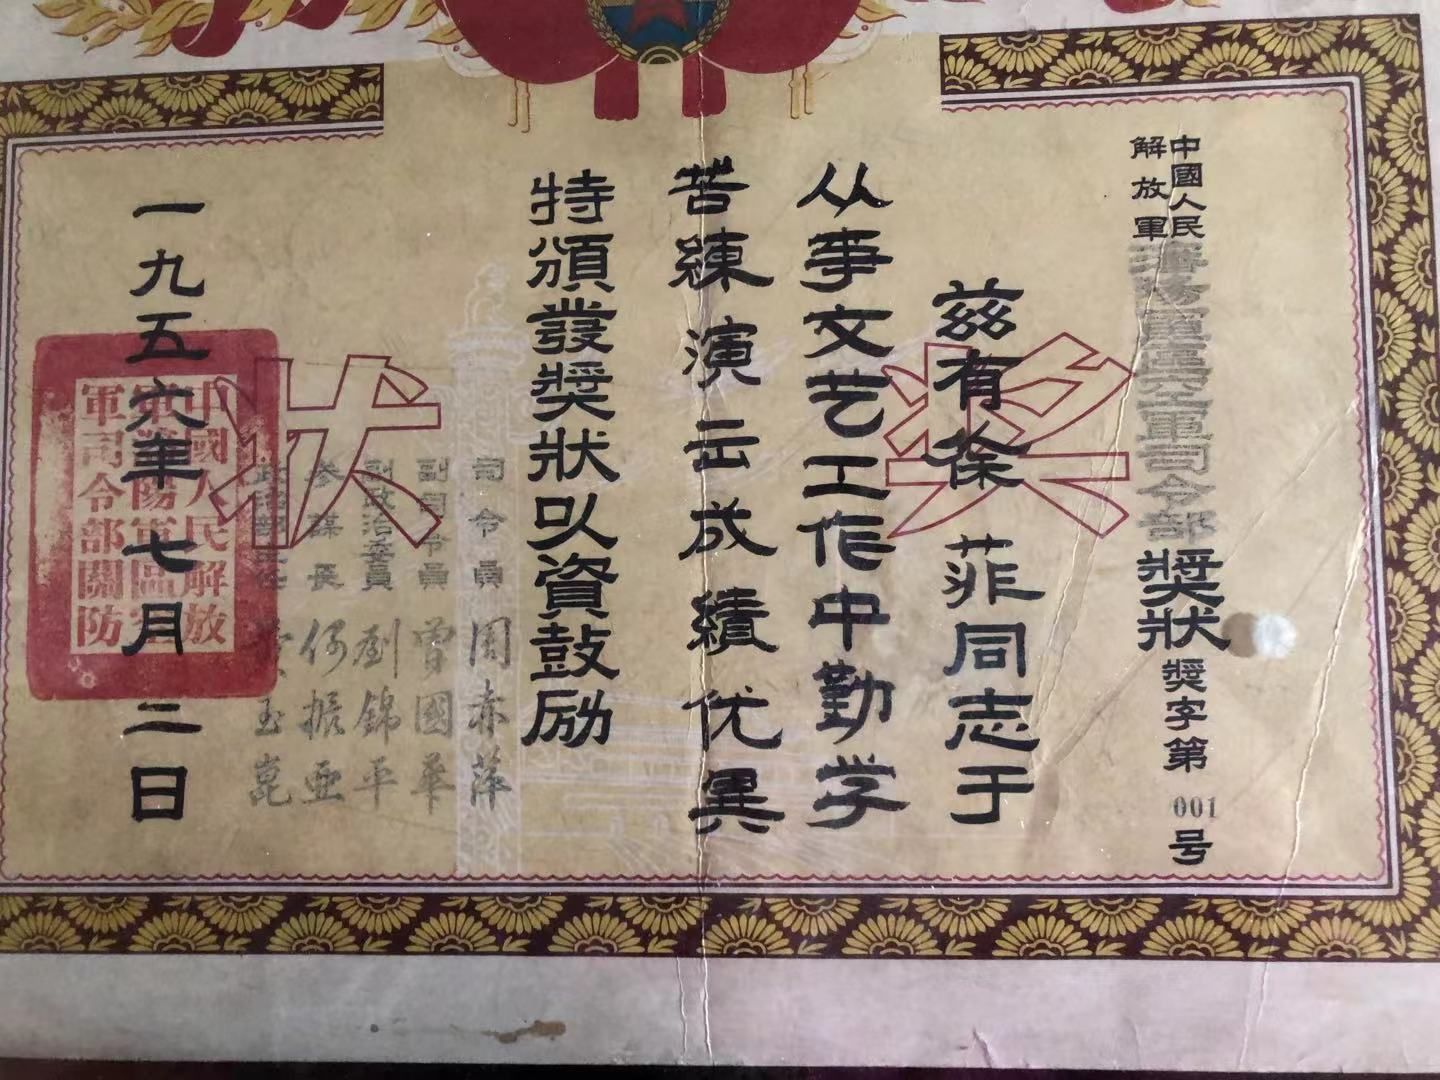 中國人民
解放軍
瀋陽軍區空軍司令部
獎狀
獎字第001号
奖状
茲有徐菲同志于
从事文艺工作中勤学
苦練演出成績优異
特頒發獎狀以資鼓励
司令員 周赤萍
副司令員 曾國華
副政治委員 劉錦平
參謀長 何振亜
玉崑
一九五六年七月二日
中國人民解放
軍瀋陽軍區空
軍司令部關防